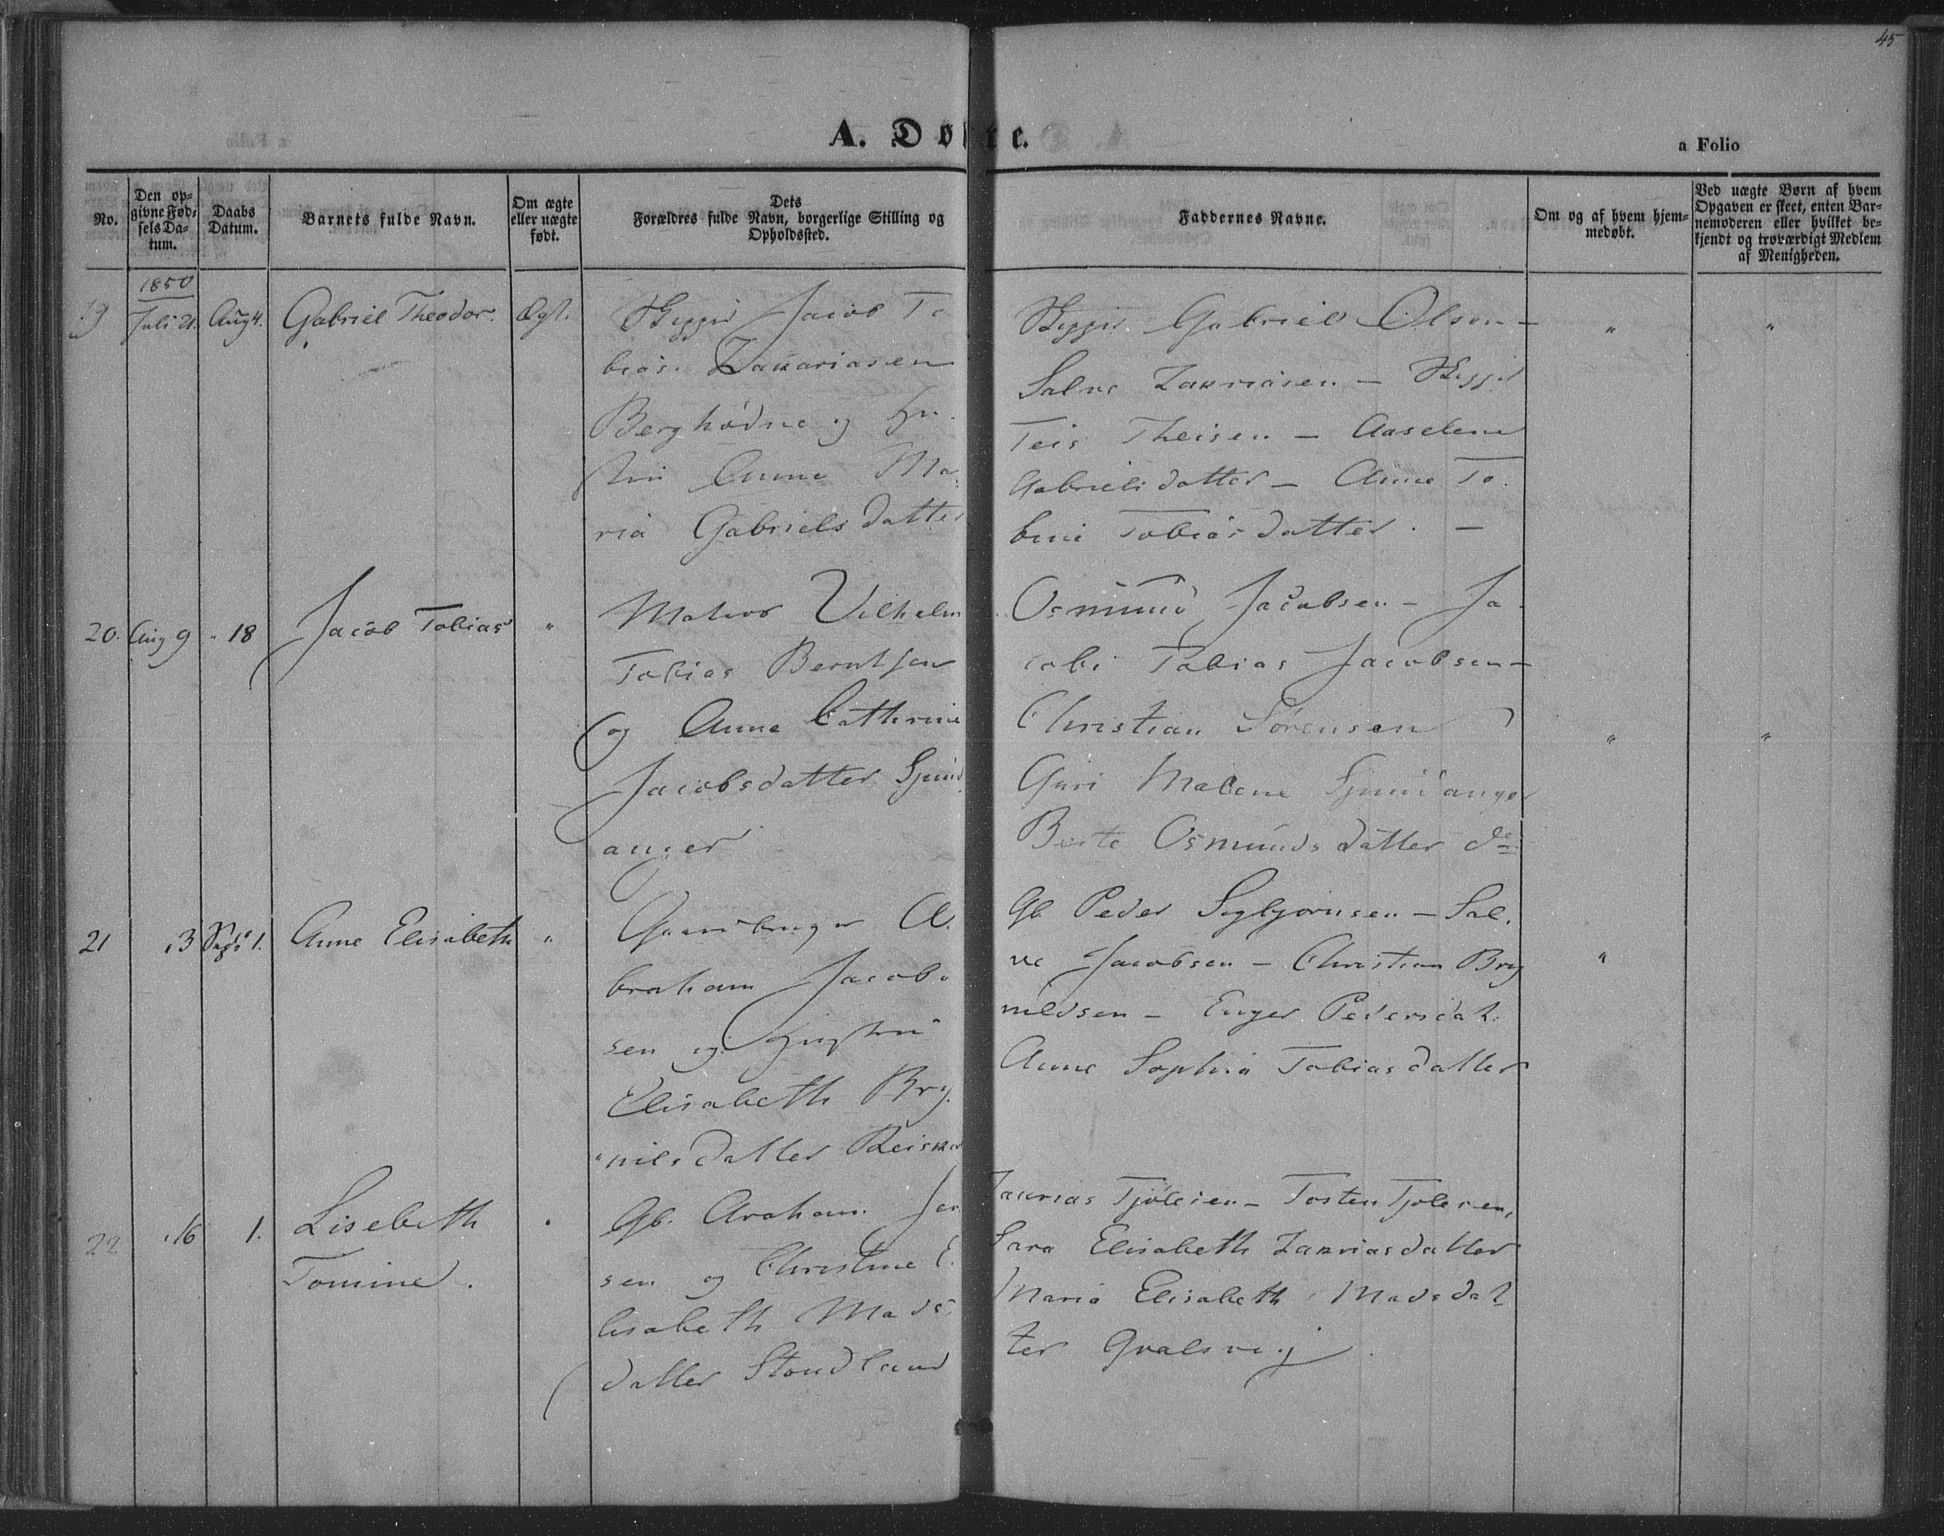 45
A. Døbte.
a Folio
No.
Den op-
givne Fød-
sels Da-
tum.
Daabs
Datum.
Barnets fulde Navn.
Om ægte
eller uægte
født.
Dets
Forældres fulde Navn, borgerlige Stilling og
Opholdssted.
Faddernes Navne.
Om og af hvem hjem-
medøbt.
Ved uægte Børn af hvem
Opgaven er skeet, enten Bar-
nemoderen eller hvilket be-
kjendt og troværdigt Medlem
af Menigheden.
1850
19 Juli 21. Aug 4. Gabriel Theodor. Ægt.
Skipper Jacob To
bias. Zakariasen
Berghødne og Hu-
stru Anne Ma,
ria Gabrielsdatter
Skipper Gabriel Olsen - " "
Salve Zakriasen - Skipper
Teis Theisen - Aaselene
Gabrielsdatter - Anne To.
bine Tobiasdatter. -
20. Aug 9 " 18 Jacob Tobias "
Matros Vilhelm
Tobias Berntsen
og Anne Cathrine
Jacobsdatter Spind
anger
Osmund Jacobsen - Ja
cobi Tobias Jacobsen -
Christian Sørensen
Guri Malene Spindanger
Berte Osmundsdatter do
" "
21 " 3 Sept 1. Anne Elisabeth "
Gaardbruger A.
braham Jacob
sen og Hustru
Elisabeth Bry.
nilsdatter
Gb Peder Sigbjørnsen - Sal.
ve Jacobsen - Christian Bry
nildsen - Enger Pedersdat.
Anne Sophia Tobiasdatter
"
22 " 16 1. Lisebeth
Tomine.
Gb. Araham
sen og Christine E.
lisabeth Mads
datter
Zakrias Tjølsen - Tosten Tjølsen,
Sara Elisabeth Zakriasdatter
Maria Elisabeth Madsdat
ter Qvalsvig